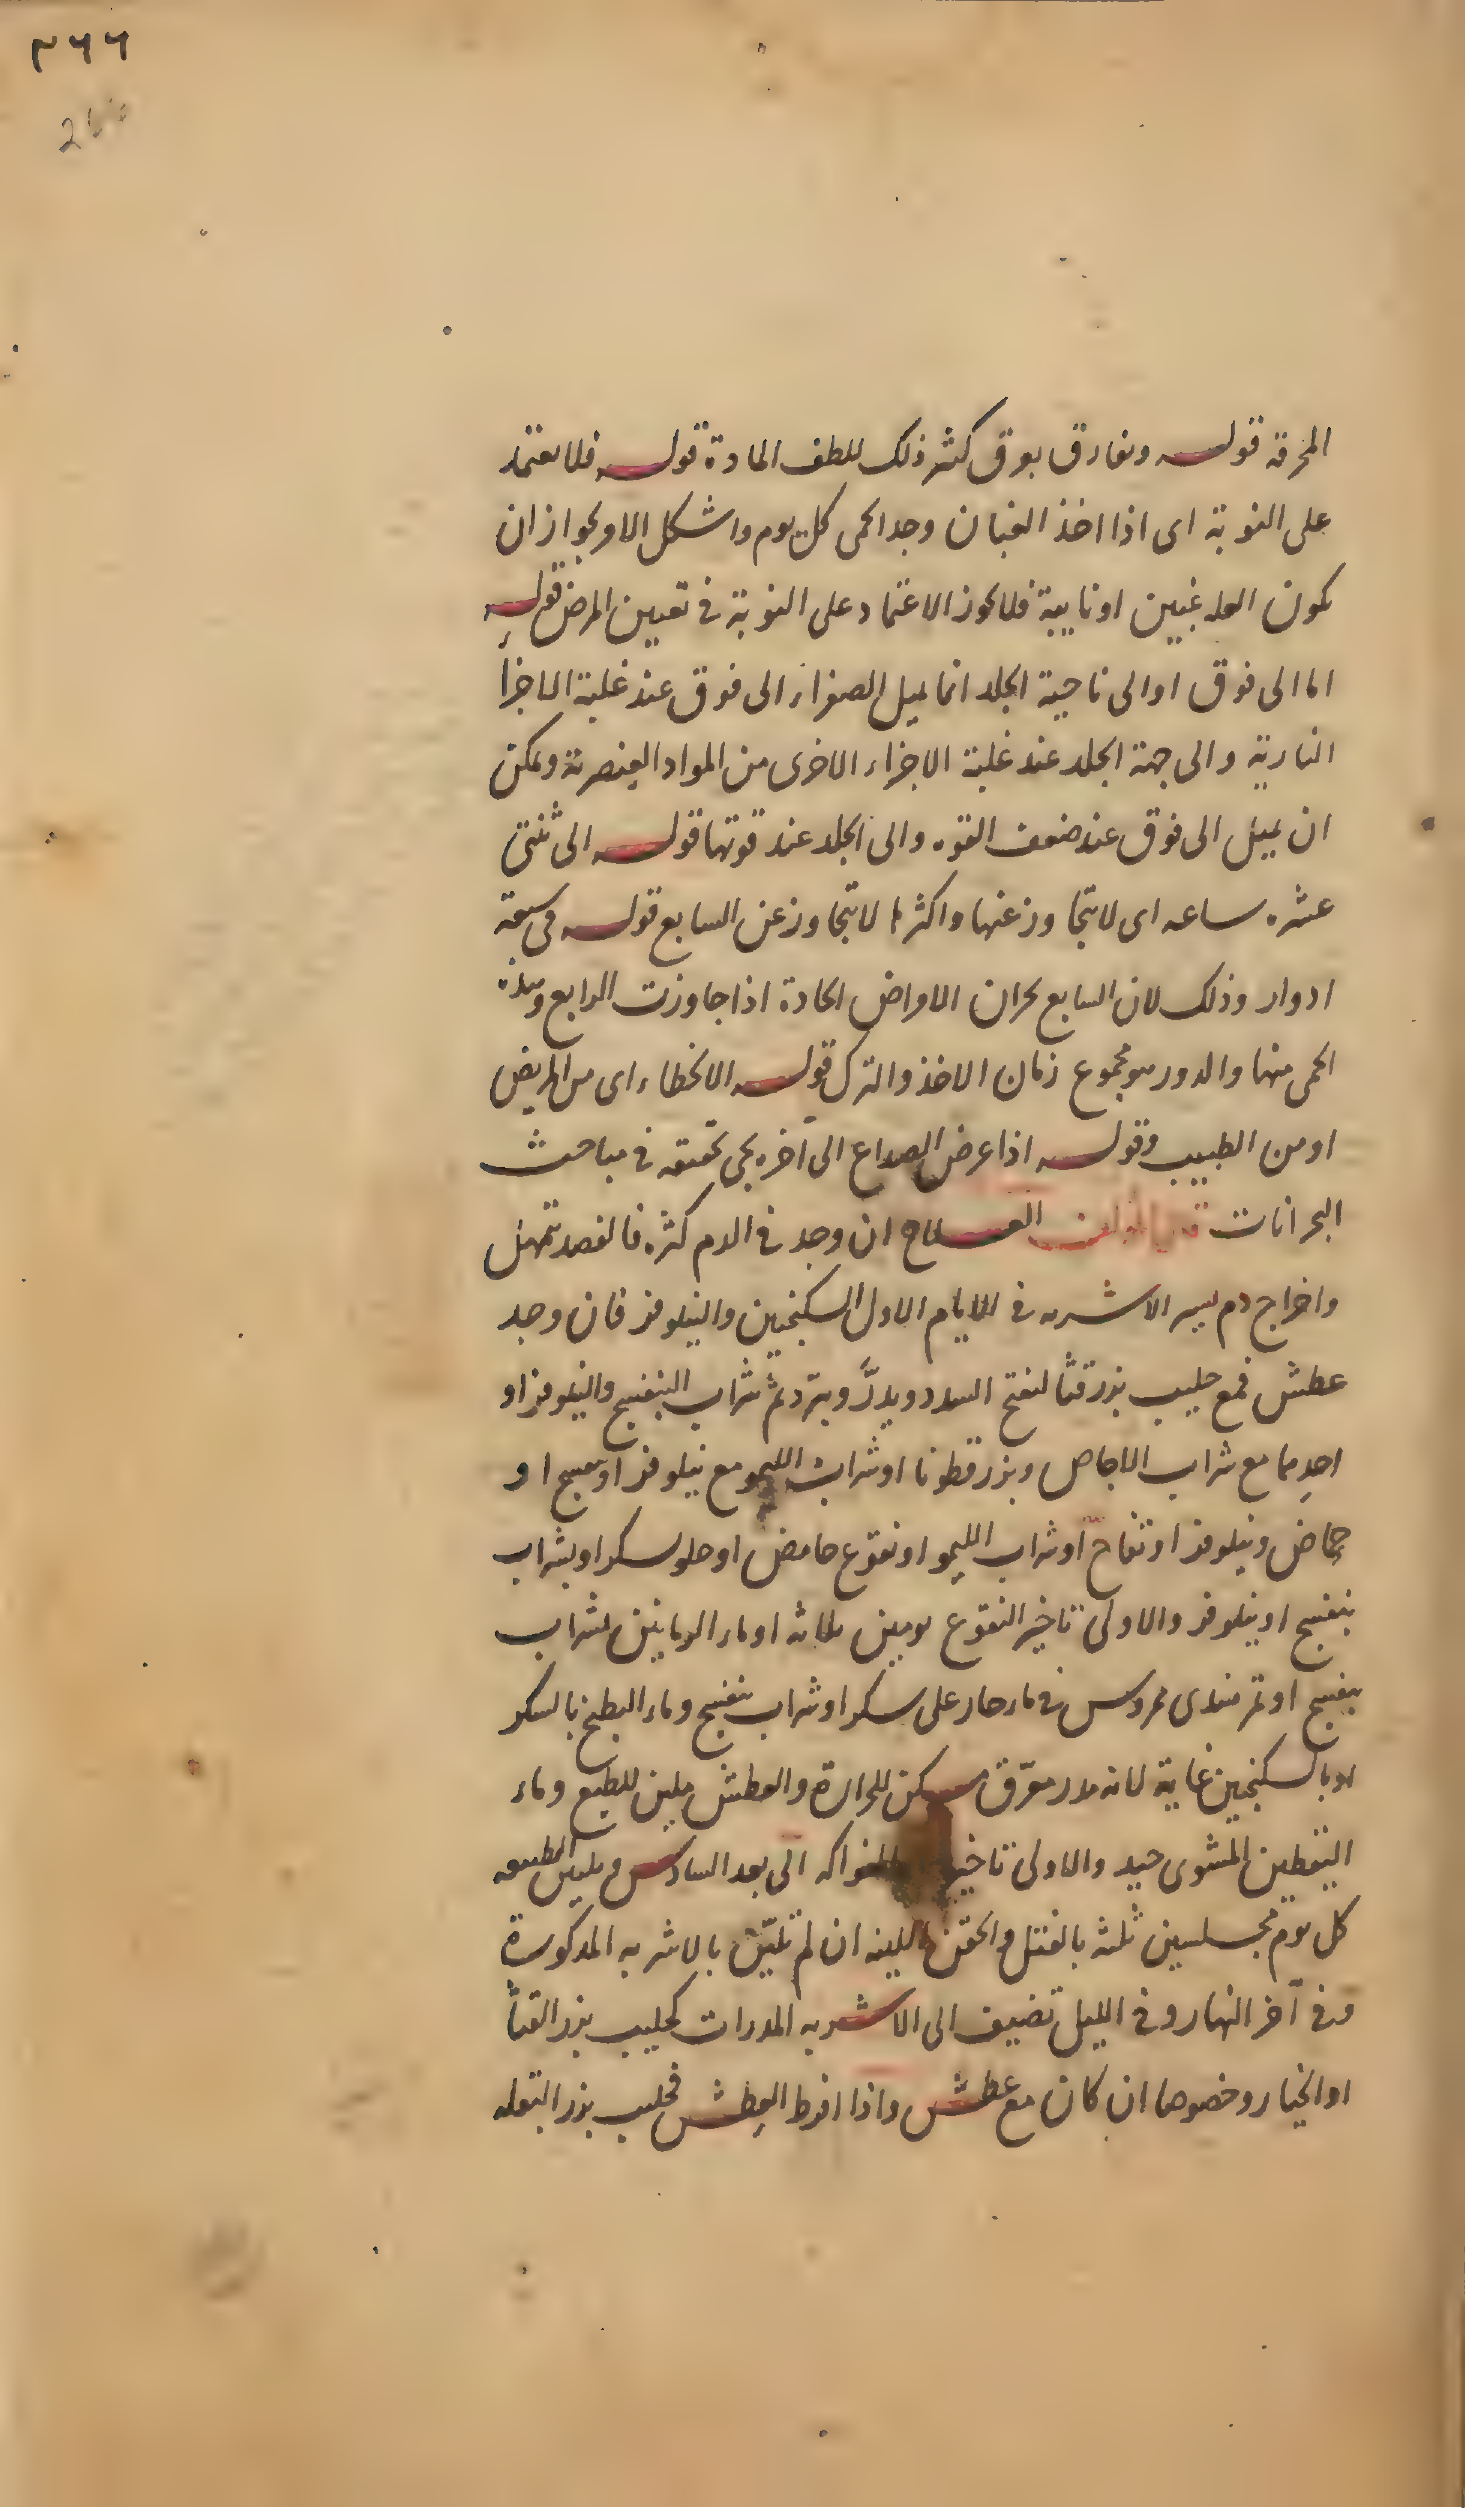 ٣٦٦
المحرقة قوله وتفارق بعرق كثير ذلك للطف المادة قوله فلا يعتمد
على النوبة اى اذا اخذ الغبان وجد الحمى كل يوم واشكل الامر لجواز ان
يكون العلة غبين او نايبة فلا يجوز الاعتماد على النوبة فى تعيين المرض قوله
اما الى فوق او الى ناحية الجلد انما يميل الصفراء الى فوق عند غلبة الاجزأ
النارية والى جهة الجلد عند غلبة الاجزاء الاخرى من المواد العنصرية ويمكن
ان يميل الى فوق عند ضعف القوه والى الجلد عند قوتها قوله الى ثنتى
عشره ساعه اى لا يتجاوز عنها واكثرها لا يتجاوز عن السابع قوله فى سبعة
ادوار وذلك لان السابع بحران الامراض الحادة اذا جاوزت الرابع وهذه
الحمى منها والدور هو مجموع زمان الاخذ والترك قوله الا لخطاء اى من المريض
او من الطبيب وقوله اذا عرض الصداع الى آخره يجى تحقيقه فى مباحث
البحرانات العلاج ان وجد فى الدم كثره فالفصد بتمهل
واخراج دم يسير الاشربه فى الايام الاول السكنجبين والنيلوفر فان وجد
عطش فمع حليب بزر قثأ لتفتح السدد ويدرّ ويبرّد ثم شراب البنفسج والنيلوفر او
احدهما مع شراب الاجاص وبزر قطونا او شراب الليمو مع نيلوفر او بنفسج او
حماض ونيلوفر او تفاح او شراب الليمو او نقوع حامض او حلو بسكر او بشراب
بنفسج او نيلوفر والاولى تاخير النقوع يومين ثلاثه او ماء الرمانين بشراب
بنفسج او تمر هندى ممروس فى ماء حار على سكر او شراب بنفسج وماء البطيخ بالسكر
او بالسكنجبين غاية لانه مدر معرّق مسكن للحرارة والعطش ملين للطبع وماء
اليقطين المشوى جيد والاولى تاخير الفواكه الى بعد السادس ويلين الطبيعه
كل يوم مجلسين ثلثه بالفتل والحقن اللينه ان لم تليّن بالاشربه المذكورة
وفى آخر النهار وفى الليل تضيف الى الاشربه المدرات كحليب بزر القثأ
او الخيار وخصوصا ان كان مع عطش واذا افرط العطش فحليب بزر البقله